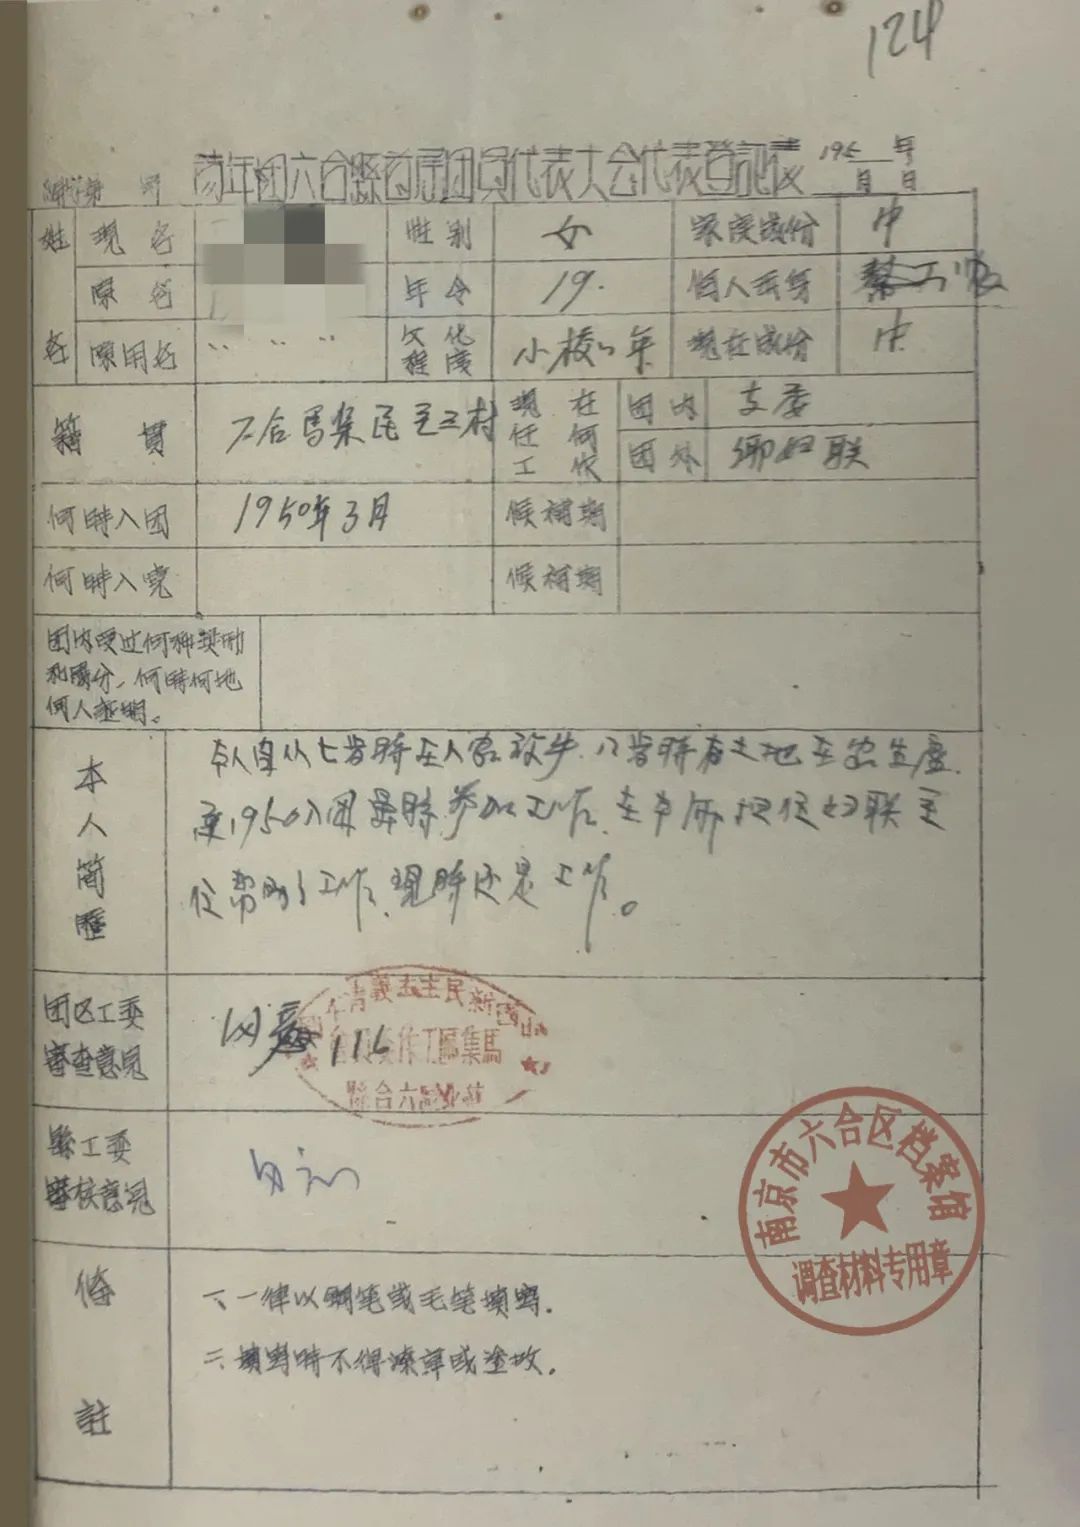 124
青年团六合縣首届团員代表大会代表登記表
195 年
月 日
編号第 号
姓名
現名
性别
女
家庭成份
中
原名
年令
19.
個人出身
幫工
原用名
〃 〃 〃
文化程度
小校 年
現在成份
中
籍貫
六合馬集民主三村
現在任何工作
团内
支委
团外
鄉妇联
何時入团
1950年3月
候補期
何時入党
候補期
团内受过何种奖励
和處分、何時何地
何人証明。
本人简歷
本人自从七岁時在人家放牛.八岁時 在 生產.
至1950入团 時参加工作. 妇联主
任帮助工作、現時还是工作。
团区工委
審查意見
同意
中國新民主主義青年團
馬集區工作委員會
六合縣
縣工委
審核意見
備註
一、一律以鋼笔或毛笔填寫.
二、填寫時不得潦草或塗改.
南京市六合区档案馆
调查材料专用章